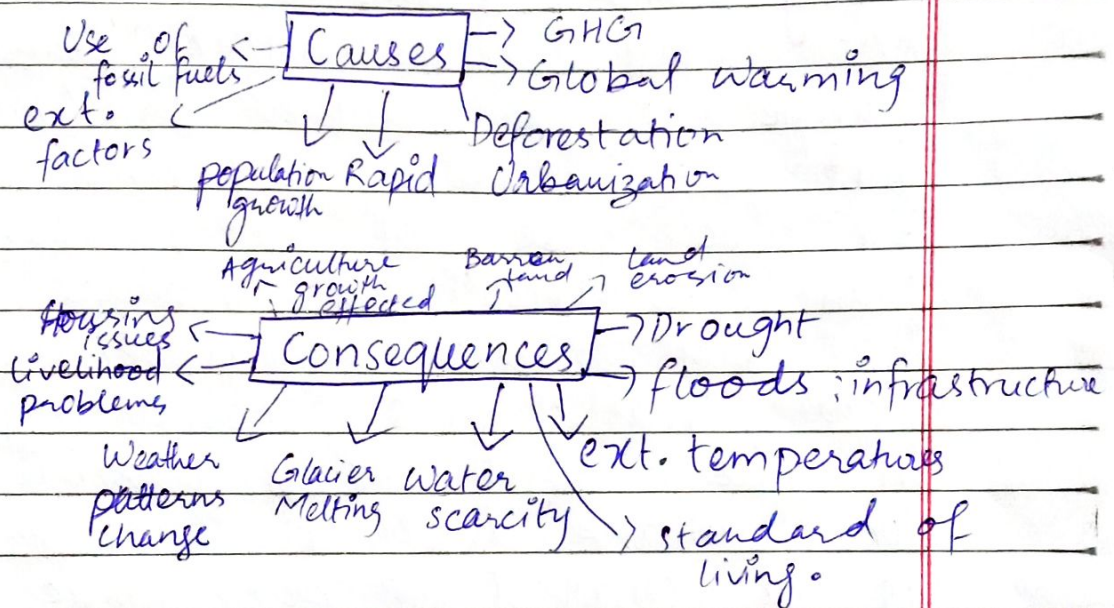 Use of
fossil fuels
Causes
GHG
Global warming
ext.
factors
Deforestation
population
growth
Rapid Urbanization
Agriculture
growth
effected
Barren
land
Land
erosion
Housing
issues
Livelihood
problems
Consequences
Drought
floods ; infrastructure
Weather
patterns
change
Glacier
Melting
Water
scarcity
ext. temperatures
standard of
living.